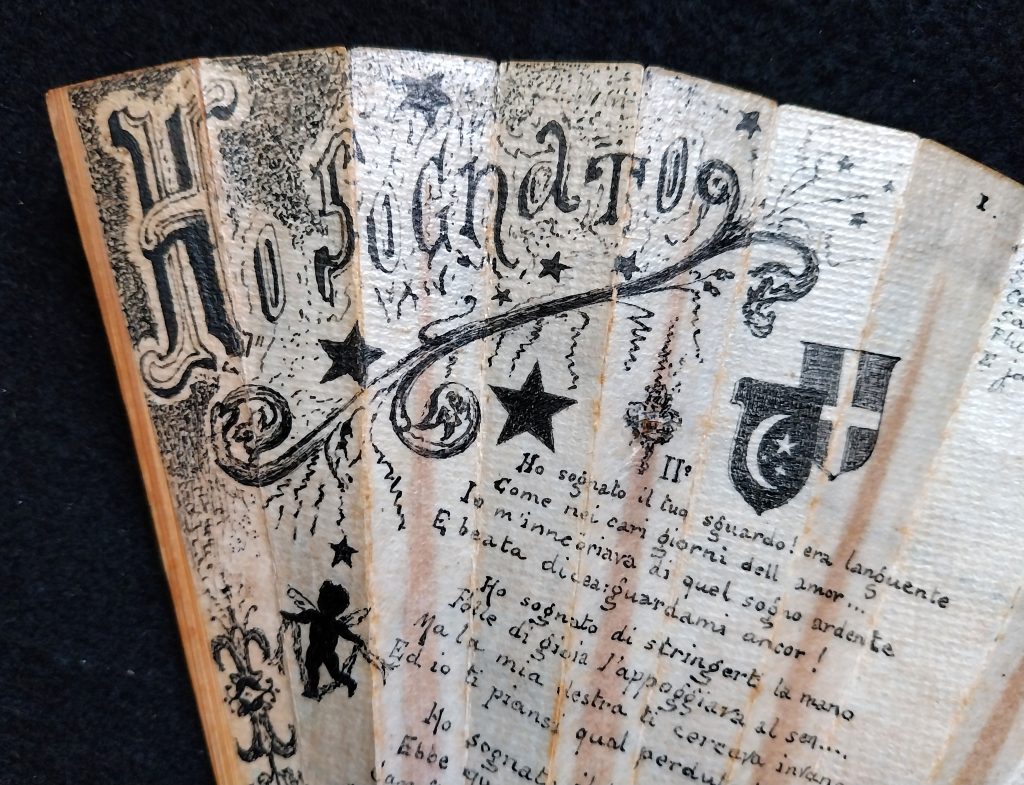 Ho Sognato
I.
II°
Ho sognato il tuo sguardo! era languente
Come nei cari giorni dell amor...
Io m'innebriava di quel sogno ardente
E beata dicea: guardami ancor!
Ho sognato di stringert la mano
Folle di gioia l'appoggiava al sen....
Ma la mia destra ti cercava invan
Ed io ti piansi qual perdut
Ho sognat il
Ebbe qu